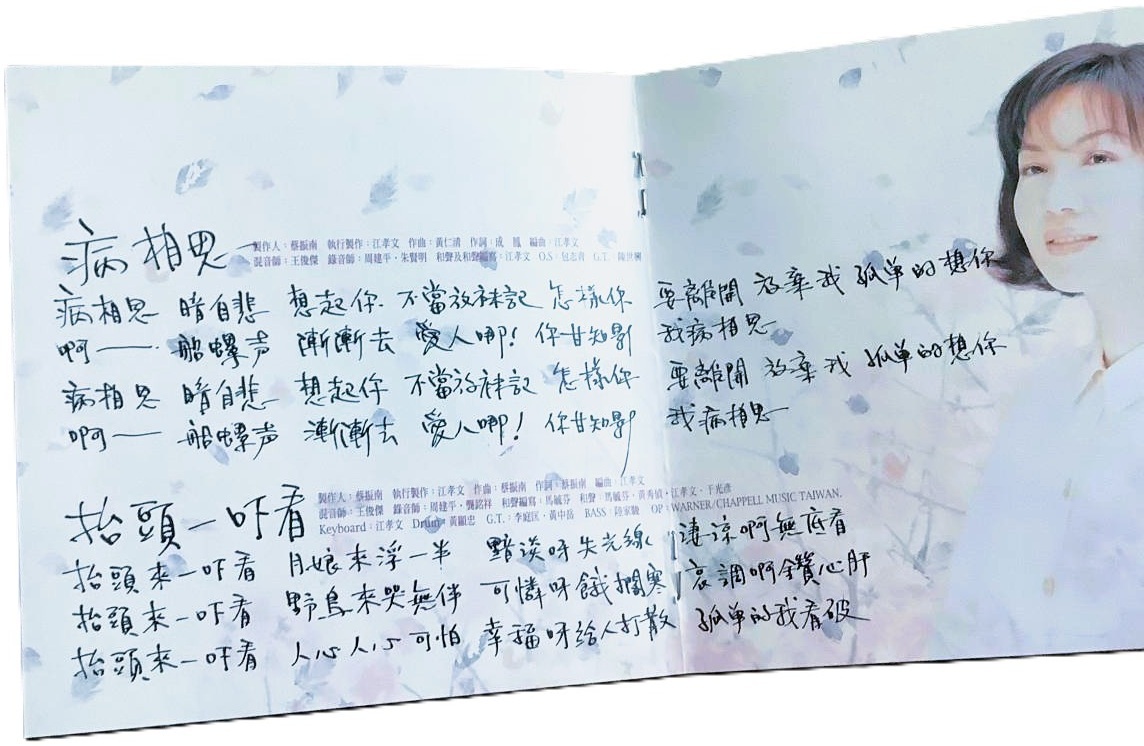 病相思
製作人：蔡振南 執行製作：江孝文 作曲：黃仁清 作詞：成 鳳 編曲：江孝文
混音師：王俊傑 錄音師：周建平・朱賢明 和聲及和聲編寫：江孝文 O.S：包志青 G.T. 
病相思 暗自悲 想起你 不當放袜記 怎樣你 要離開 放棄我 孤单的想你
啊—— 船螺声 漸漸去 愛人唧！ 你甘知影 我病相思
病相思 暗自悲 想起你 不當放袜記 怎樣你 要離開 放棄我 孤单的想你
啊—— 船螺声 漸漸去 愛人唧！ 你甘知影 我病相思
抬頭一吓看
製作人：蔡振南 執行製作：江孝文 作曲：蔡振南 作詞：蔡振南 編曲：江孝文
混音師：王俊傑 錄音師：周建平・龔銘祥 和聲編寫：馬毓芬 和聲：馬毓芬・黃秀禎・江孝文・于光彥
Keyboard：江孝文 Drum：黃顯忠 G.T.：李庭匡・黃中岳 BASS：陸家駿 OP：WARNER/CHAPPELL MUSIC TAIWAN.
抬頭來一吓看 月娘來浮一半 黯淡呀失光線 淒涼啊無底看
抬頭來一吓看 野鳥來哭無伴 可憐呀餓擱寒 哀調啊鑽心肝
抬頭來一吓看 人心人心可怕 幸福呀給人打散 孤单的我看破